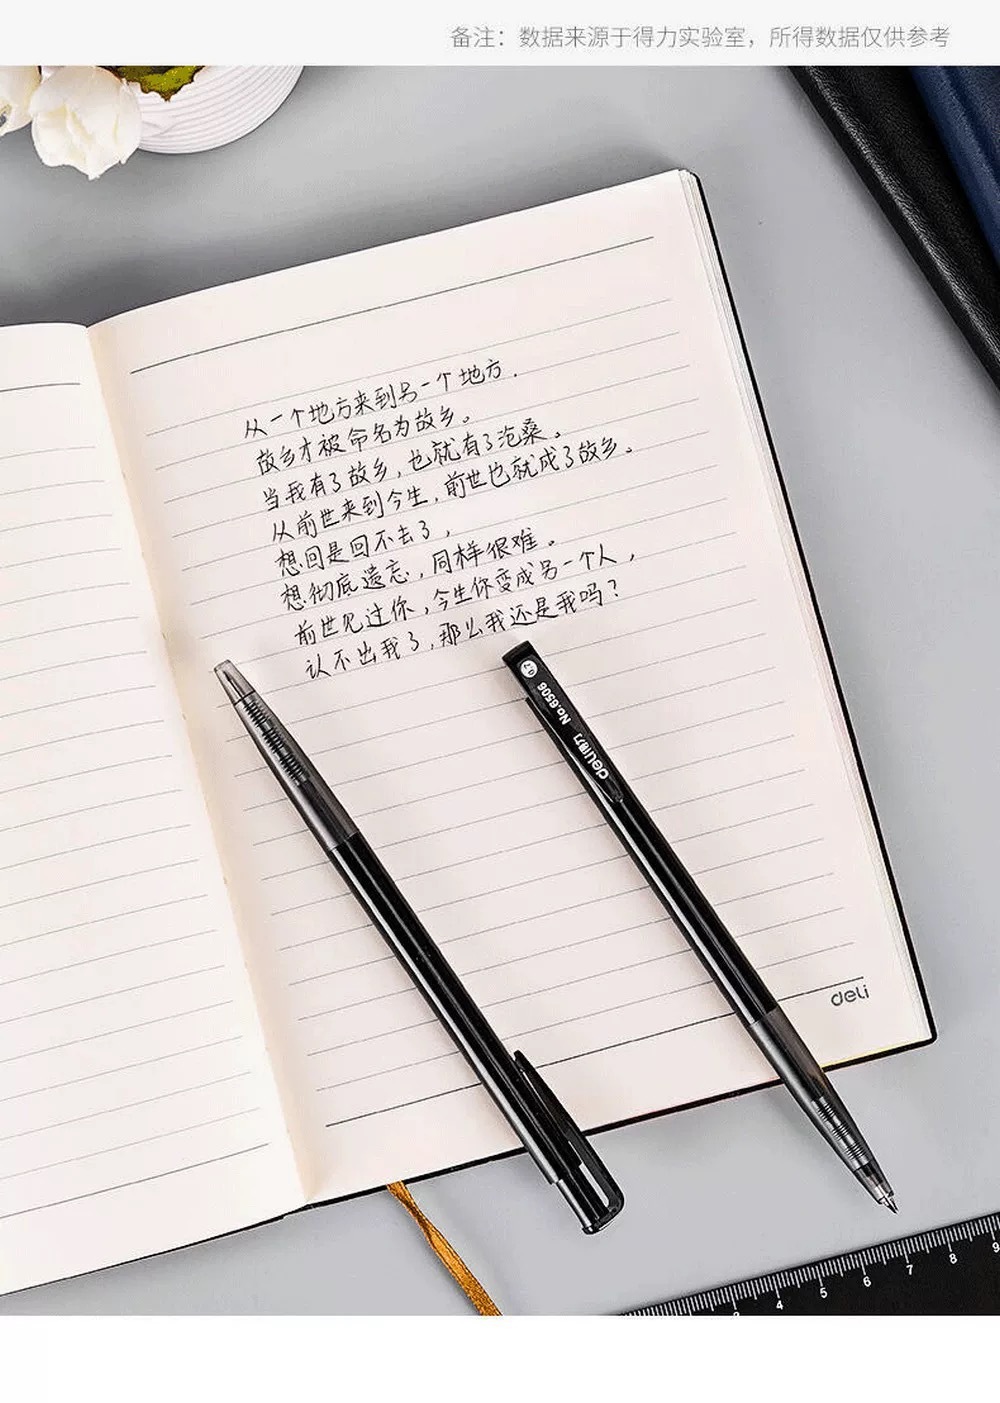 备注：数据来源于得力实验室，所得数据仅供参考
从一个地方来到另一个地方.
故乡才被命名为故乡。
当我有了故乡，也就有了沧桑。
从前世来到今生，前世也就成了故乡。
想回是回不去了，
想彻底遗忘，同样很难。
前世见过你，今生你变成另一个人，
认不出我了，那么我还是我吗？
0.7 No.6506 deli得力
deli
4 5 6 7 8 9